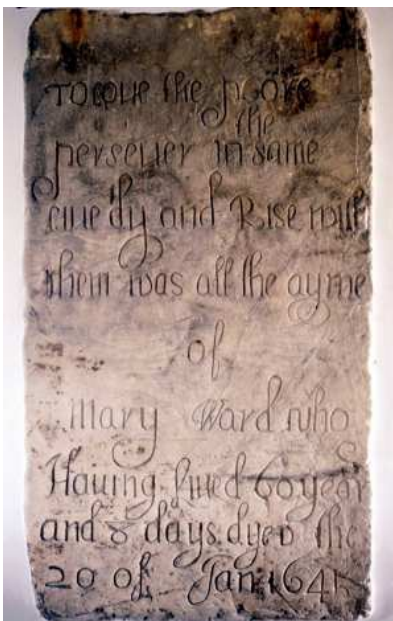 TO LOUE the poore
the
perseuer in same
liue dy and Rise with
them was all the ayme
of
Mary Ward who
Hauing liued 60 year
and 8 days dyed the
20 of Jan